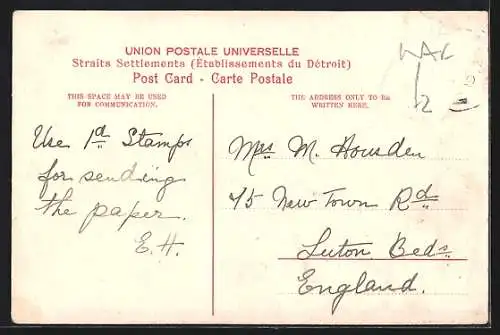 UNION POSTALE UNIVERSELLE
Straits Settlements (Établissements du Détroit)
Post Card - Carte Postale
THIS SPACE MAY BE USED
FOR COMMUNICATION.
THE ADDRESS ONLY TO BE
WRITTEN HERE.
Use 1d Stamps
for sending
the paper.
E.H.
Mrs M. Housden
75 New Town Rd
Luton Beds
England.